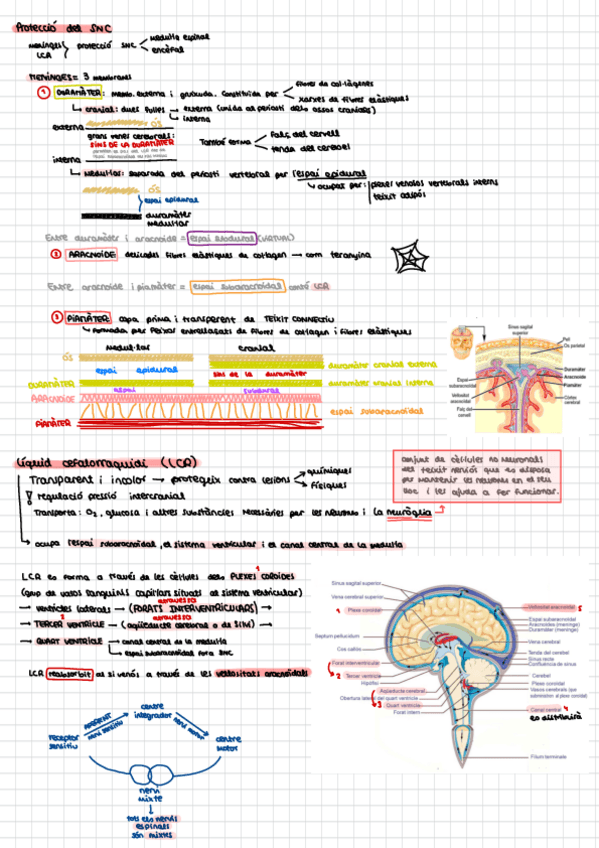 Protecció del SNC
meninges
LCR
protecció SNC
medul·la espinal
encèfal
MENINGES = 3 membranes
1 DURAMÀTER: memb. externa i gruixuda. Constituïda per
fibres de col·làgenes
xarxes de fibres elàstiques
cranial: dues fulles
externa (unida al periosti dels ossos cranials)
interna
externa
OS
grans venes cerebrals:
SINS DE LA DURAMÀTER
interna
També forma
Falç del cervell
tenda del cerebel
Medul·lar: separada del periosti vertebral per l'espai epidural
ocupat per:
plexes venosos vertebrals interns
teixit adipós
OS
espai epidural
duramàter
medul·lar
Entre duramàter i aracnoide = espai subdural (VIRTUAL)
2 ARACNOIDE: delicades fibres elàstiques de collagen → com teranyina
Entre aracnoide i piamàter = espai subaracnoidal conté LCR
3 PIAMÀTER: capa prima i transparent de TEIXIT CONNECTIU
formada per feixos entrellaçats de fibres de collagen i fibres elàstiques
medul·lar
cranial
OS
espai epidural
sins de la duramàter
duramàter cranial externa
DURAMÀTER
duramàter cranial interna
espai
subdural
ARACNOIDE
espai subaracnoidal
PIAMÀTER
Sinus sagital
superior
Pell
Os parietal
Duramàter
Aracnoide
Piamàter
Còrtex
cerebral
Espai
subaracnoidal
Vellositat
aracnoidal
Falç del
cervell
Líquid cefalorraquidi (LCR)
Transparent i incolor → protegeix contra lesions
químiques
físiques
regulació pressió intercranial
Transporta: O2, glucosa i altres substàncies necessàries per les neurones i la neuròglia
ocupa l'espai subaracnoidal, el sistema ventricular i el canal central de la medul·la
conjunt de cèl·lules no neuronals
del teixit nerviós que es disposa
per mantenir les neurones en el seu
lloc i les ajuda a fer funcionar.
LCR es forma a través de les cèl·lules dels PLEXES COROIDES 1
(grup de vasos sanguinis capil·lars situats al sistema ventricular)
atravessa
→ ventricles laterals → (FORATS INTERVENTRICULARS) →
2
atravessa
→ TERCER VENTRICLE → (aqüeducte cerebral o de Silvi) →
3
→ QUART VENTRICLE
canal central de la medul·la
espai subaracnoidal fora SNC
LCR reabsorbit al si venós a través de les vellositats aracnoidals
receptor
sensitiu
aferent
nervi sensitiu
centre
integrador
nervi motor
centre
motor
nervi
mixte
tots els nervis
espinals
són mixtes
Sinus sagital superior
Vena cerebral superior
1 Plexe coroidal
Septum pellucidum
Cos callós
Forat interventricular
2 Tercer ventricle
Hipòfisi
Aqüeducte cerebral
Obertura lateral del quart ventricle
3 Quart ventricle
Forat intern
Vellositat aracnoidal 5
Espai subaracnoidal
Aracnoides (meninge)
Duramàter (meninge)
Vena cerebral
Tenda del cerebel
Sinus recte
Confluència de sinus
Cerebel
Plexe coroidal
Vasos cerebrals que
subministren al plexe coroidal
Canal central 4
es distribuirà
Filum terminale